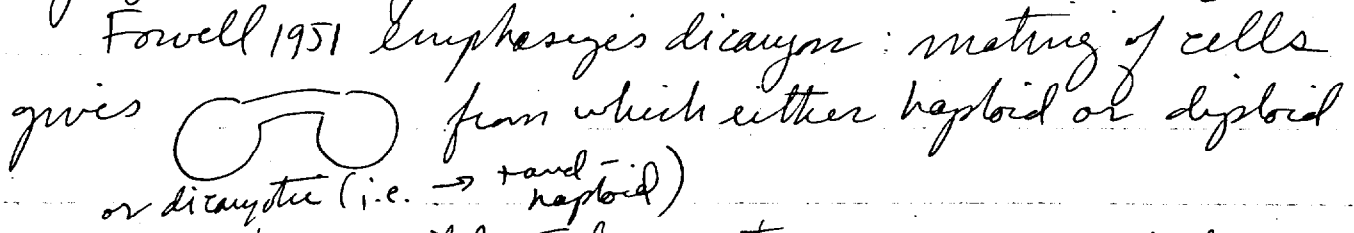 Fowell 1951 emphasizes dicaryon : mating of cells
gives from which either haploid or diploid
or dicaryotic (i.e. → + and -
haploid)